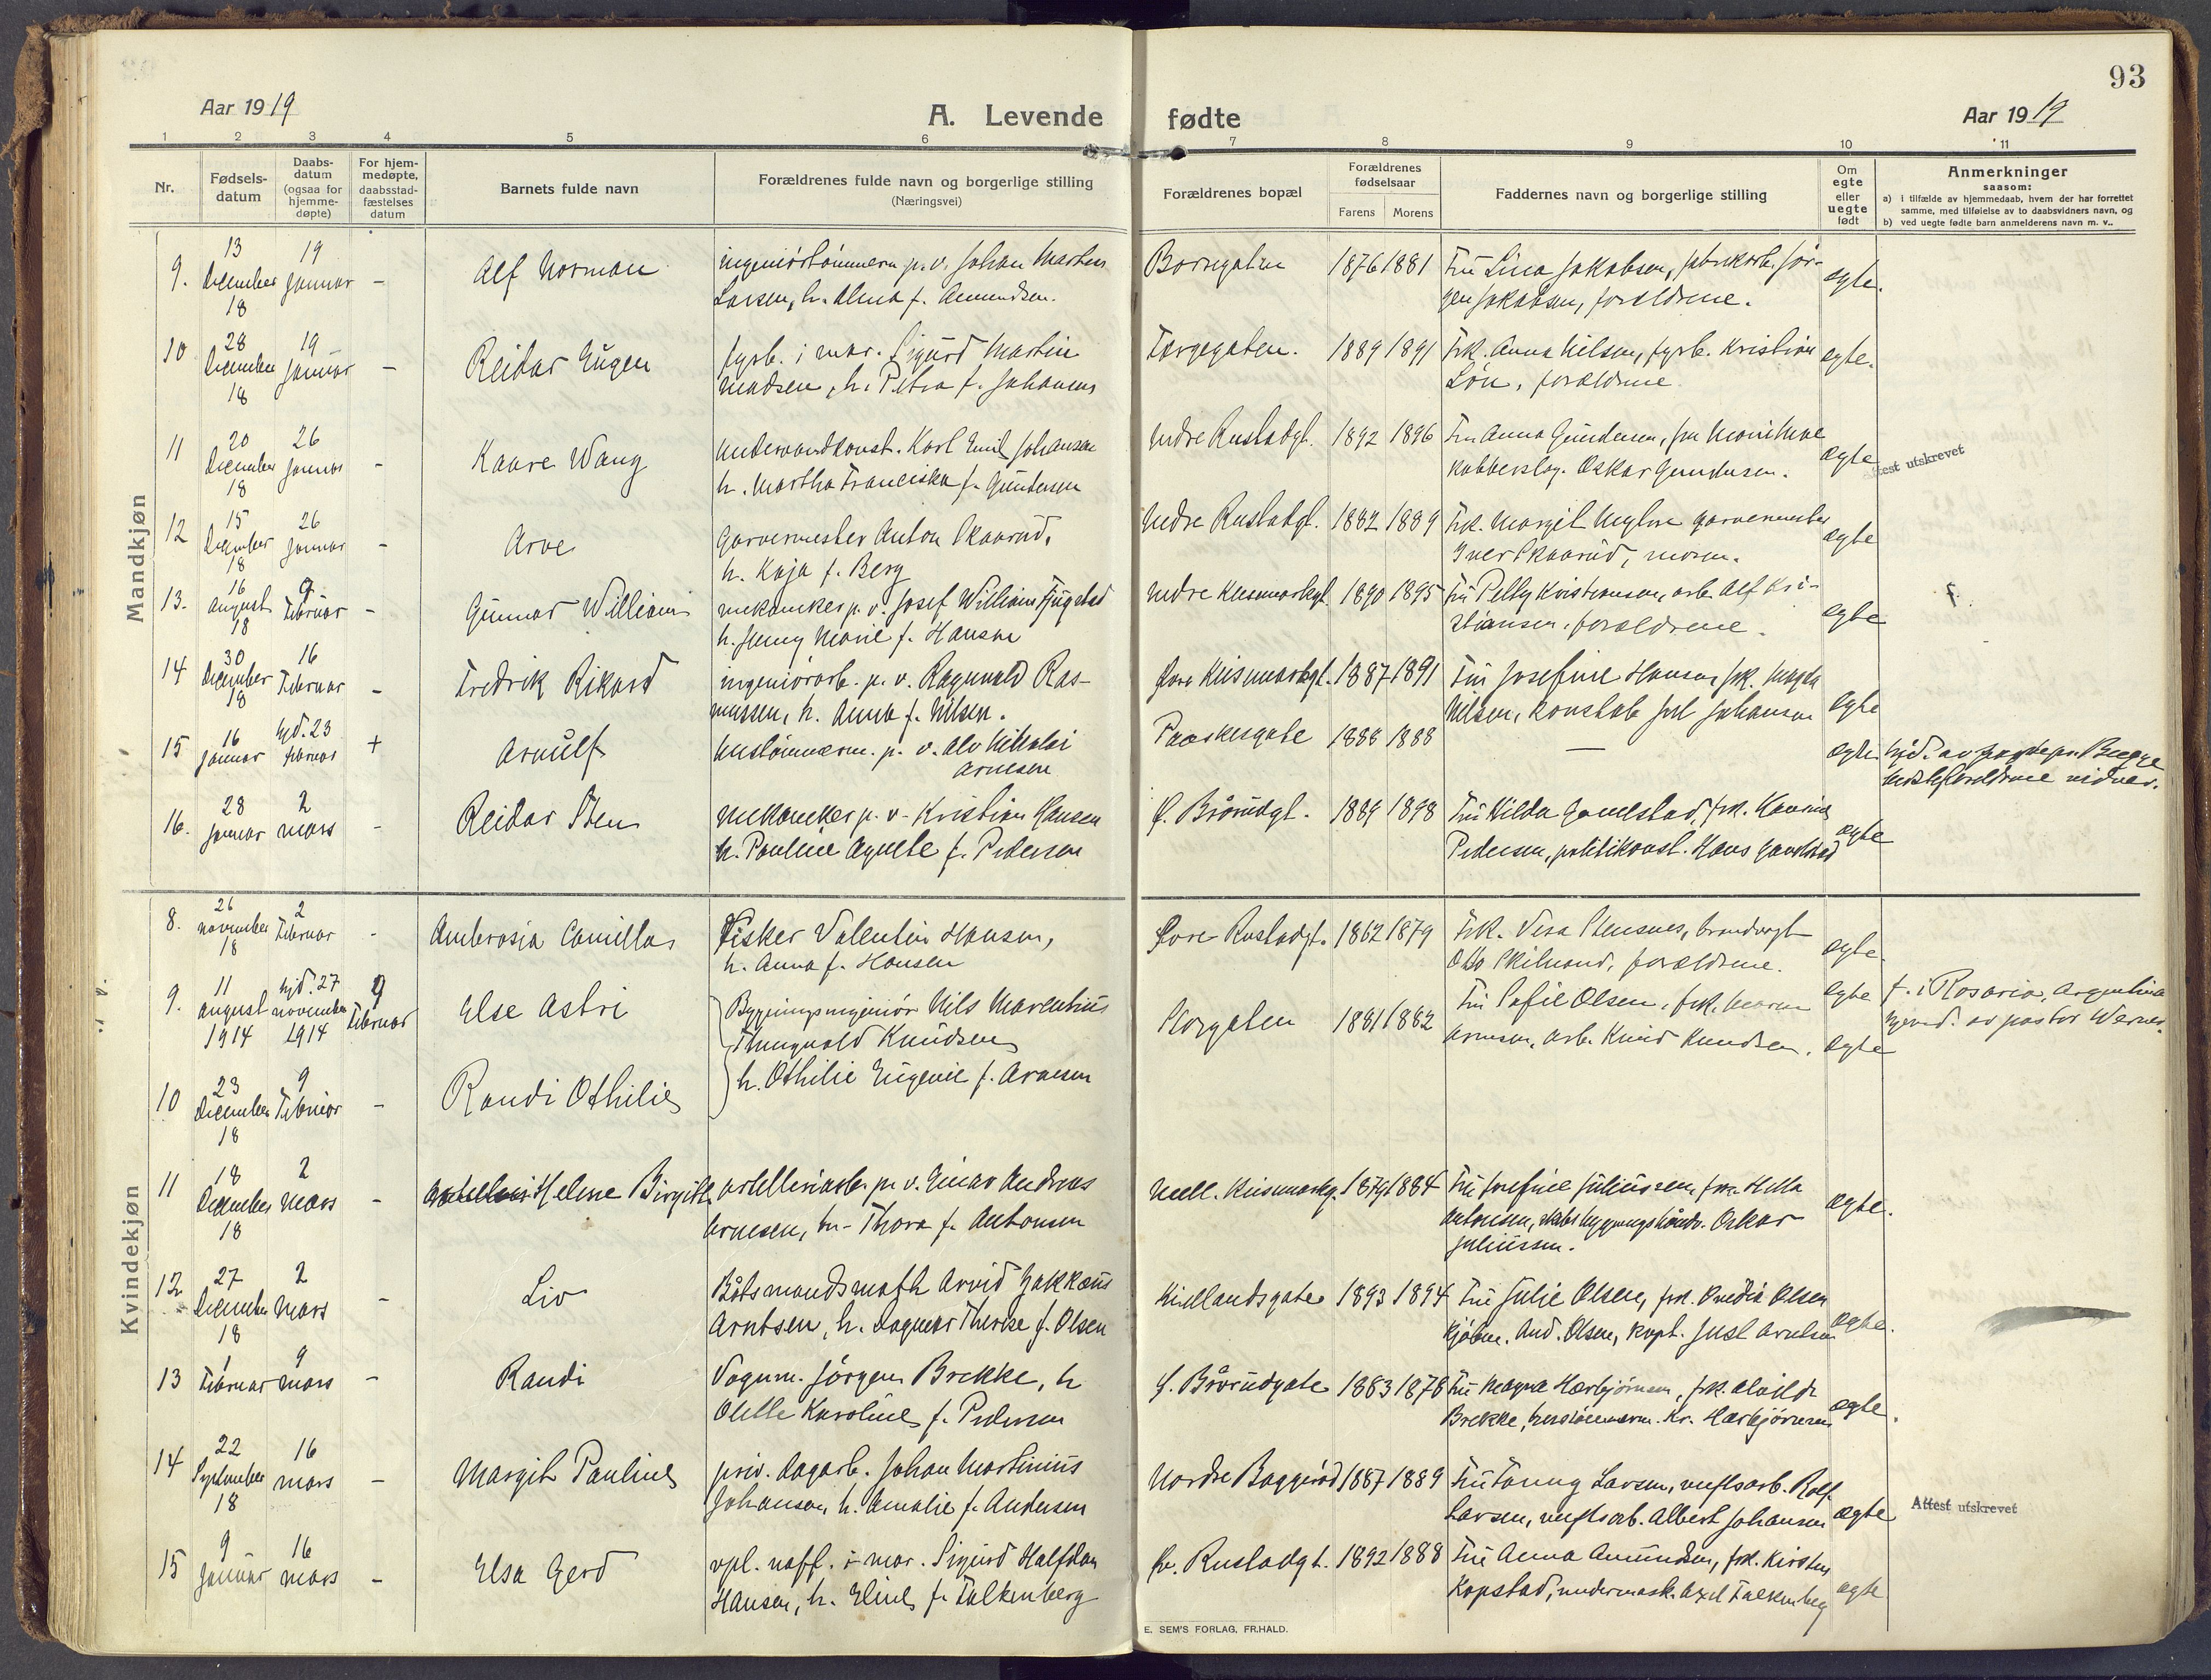 93
Aar 1919
A. Levende fødte
Aar 1919
1 2 3 4 5 6 7 8 9 10 11
Nr.
Fødsels-
datum
Daabs-
datum
(ogsaa for
hjemme-
døpte)
For hjem-
medøpte,
daabsstad-
fæstelses
datum
Barnets fulde navn
Forældrenes fulde navn og borgerlige stilling
(Næringsvei)
Forældrenes bopæl
Forældrenes
fødselsaar
Farens Morens
Faddernes navn og borgerlige stilling
Om
egte
eller
uegte
født
Anmerkninger
saasom:
a) i tilfælde av hjemmedaab, hvem der har forrettet
samme, med tilføielse av to daabsvidners navn, og
b) ved uegte fødte barn anmelderens navn m. v..
Mandkjøn
9. 13 December 18 19 Januar - Alf Norman
p. v. Johan Martin
Larsen, h. Alma f. Amundsen.
1876 1881
Fru Lina Jakobsen, fabrikarb. Jør-
gen Jakobsen, forældrene.
egte.
10 28 December 18 19 Januar - Reidar Eugen
fyrb. i mar. Sigurd Martin
Madsen, h. Petra f. Johansen
Torgegaten. 1889 1891
Frk. Anna Nilsen, fyrb. Kristian
Løn, forældrene
egte.
11 20 December 18 26 Januar - Kaare Wang
Karl Emil Johansen
h. Martha Franciska f. Gundersen
Indre Rustadgt. 1892 1896
Fru Anna Gundersen,
kobberslag. Oskar Gundersen.
egte
Attest utskrevet
12 15 December 18 26 Januar - Arve
Garvermester Anton Skaarud,
h. Kaja f. Berg
Indre Rustadgt. 1882 1889
Frk. Margit garvermester
Iver Skaarud, moren.
egte
13. 16 August 18 9 Februar - Gunnar William
mekaniker p. v. Josef William Fjugstad
h. Jenny Marie f. Hansen
1890 1895
Fru Pelly Kristiansen, arb. Alf Kri-
stiansen, forældrene.
egte
14 30 December 18 16 Februar - Fredrik Rikard
ingeniørarb. p. v. Ragnvald Ras-
mussen, h. Anna f. Nilsen.
1887 1891
Fru Josefine Hansen, frk. Magda
Nilsen, konstab Johansen
egte
15 16 Januar hjd. 23 + Arnulf
p. v. Alv Nikolai
Arnesen
1888 1888
—
egte
hjd. av Bugge
16. 28 Januar 2 Mars - Reidar Sten
Mekaniker p. v. Kristian Hansen
h. Pauline Agnete f. Pedersen
Ø. Brårudgt. 1889 1898
Fru Hilda Gavelstad, frk.
Pedersen, politikonst. Hans Gavelstad
egte
Kvindekjøn
8. 26 November 18 2 Februar - Ambrosia Camilla
Fisker Valentin Hansen,
h. Anna f. Hansen
Øvre Rustadgt. 1862 1879
Frk. Vera Stensnes, brandvagt
Otto forældrene.
egte
9. 11 August 1914 hjd. 27 November 1914 9 Februar Else Astri
Bygningsingeniør Nils Marentius
Knudsen
h. Othilie Eugenie f. Arnesen
Storgaten 1881 1882
Fru Sofie Olsen, frk.
Arnesen, arb. Knud Knudsen.
egte
egte
f. i Rosario, Argentina
hjemd. av pastor
10 23 December 18 9 Februar - Randi Othilie
11 18 December 18 2 Mars - Helene Birgitte
p. v. Einar Andreas
Arnesen, h. Thora f. Antonsen
1879 1884
Fru Josefine Juliussen,
Antonsen, Oskar
Juliussen.
egte.
12 27 December 18 2 Mars - Liv
Båtsmandsmath Arvid Zakkæus
Arntsen, h. Dagmar Therese f. Olsen
Kiellandsgate 1893 1894
Fru Julie Olsen, frk. Olsen
kjøbm. And. Olsen, kapt. Just Arntsen
egte.
13 1 Februar 9 Mars - Randi
Vognm. Jørgen Brekke, h
Olette Karoline f. Pedersen
Ø. Brårudgate 1883 1878
Fru Magna Hasbjørnsen, frk. Alvilde
Brekke, Kr. Hasbjørnsen
egte.
14 22 September 18 16 Mars - Margit Pauline
priv. dagarb. Johan Martinius
Johansen, h. Amalie f. Andersen
Nordre Baggerød 1887 1889
Fru Fanny Larsen, verftsarb. Rolf
Larsen, verftsarb. Albert Johansen
egte
Attest utskrevet
15 9 Januar 16 Mars - Elsa Gerd
vpl. uoff. i mar. Sigurd Halfdan
Hansen, h. Eline f. Falkenberg
Rustadgt. 1892 1888
Fru Anna Amundsen, frk. Kirsten
Kopstad, undermask. Axel Falkenberg
egte
E. SEM'S FORLAG, FR.HALD.